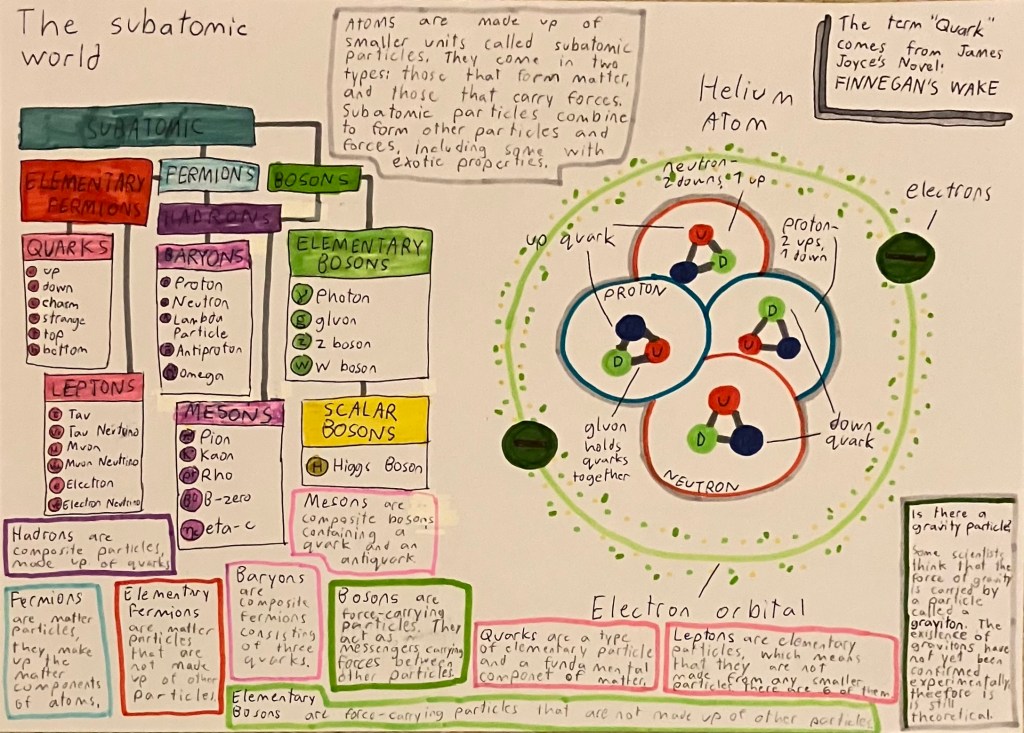 The subatomic
world
ATOMS are made up of
smaller units called subatomic
particles. They come in two
types: those that form matter,
and those that carry forces.
Subatomic particles combine
to form other particles and
forces, including some with
exotic properties.
The term "Quark"
comes from James
Joyce's Novel:
FINNEGAN'S WAKE
SUBATOMIC
ELEMENTARY
FERMIONS
FERMIONS
BOSONS
HADRONS
QUARKS
up
down
charm
strange
top
bottom
BARYONS
Proton
Neutron
Lambda
Particle
Antiproton
Omega
ELEMENTARY
BOSONS
γ Photon
g gluon
Z Z boson
W W boson
LEPTONS
Tau
Tau Neutrino
Muon
Muon Neutrino
Electron
Electron Neutrino
MESONS
Pion
Kaon
Rho
B-zero
eta-c
SCALAR
BOSONS
H Higgs Boson
Helium
Atom
neutron-
2 downs, 1 up
electrons
up quark
proton-
2 ups,
1 down
U
D
PROTON
D
U
D
U
U
D
gluon
holds
quarks
together
down
quark
NEUTRON
Electron orbital
Hadrons are
composite particles,
made up of quarks
Mesons are
composite bosons
containing a
quark and an
antiquark.
Fermions
are matter
particles,
they make
up the
matter
components
of atoms.
Elementary
Fermions
are matter
particles
that are
not made
up of other
particles.
Baryons
are
composite
fermions
consisting
of three
quarks.
Bosons are
force-carrying
particles. They
act as
messengers carrying
forces between
other particles.
Quarks are a type
of elementary particle
and a fundamental
componet of matter.
Leptons are elementary
particles, which means
that they are not
made from any smaller
particles there are 6 of them
Elementary
Bosons are force-carrying particles that are not made up of other particles
Is there a
gravity particle?
Some scientists
think that the
force of gravity
is carried by
a particle
called a
graviton. The
existence of
gravitons have
not yet been
confirmed
experimentally,
therefore is
is still
theoretical.